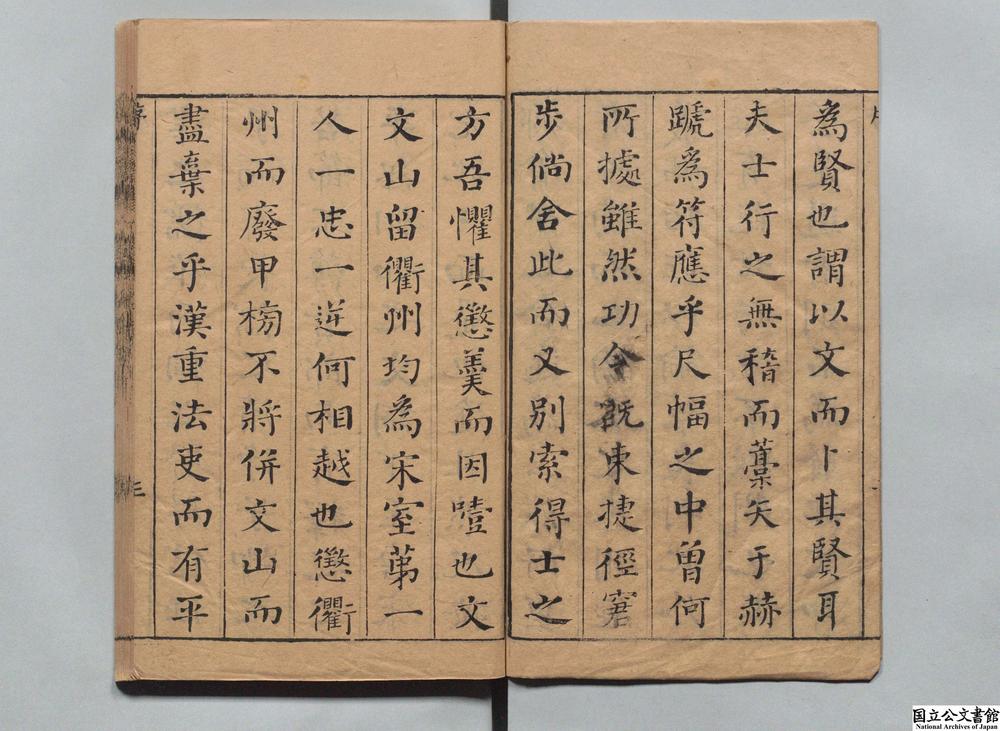 為賢也謂以文而卜其賢耳
夫士行之無稽而藁矢于赫
蹏為符應乎尺幅之中曾何
所據雖然功令既束捷徑窘
步倘舍此而又別索得士之
方吾懼其懲羹而因噎也文
文山留衢州均為宋室苐一
人一忠一逆何相越也懲衢
州而廢甲榜不將併文山而
盡棄之乎漢重法吏而有平
序
三
国立公文書館
National Archives of Japan